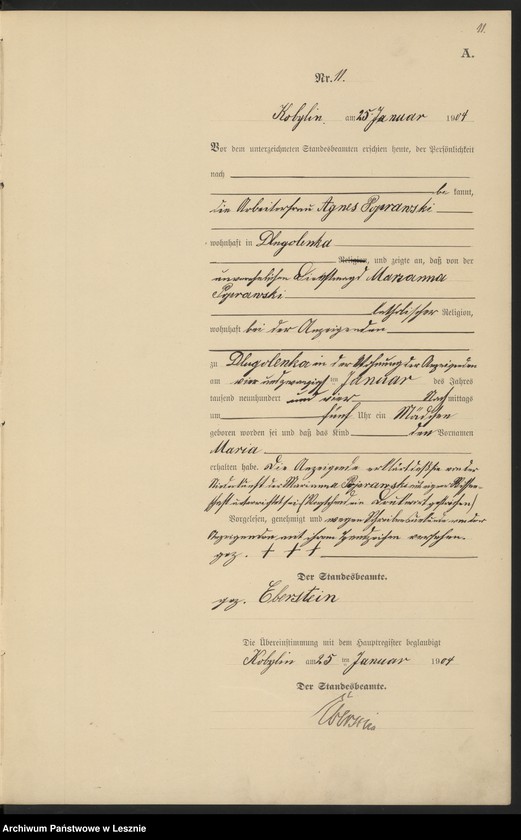 11.
A.
Nr. 11.
Kobylin, am 25 Januar 1904
Vor dem unterzeichneten Standesbeamten erschien heute, der Persönlichkeit
nach
be kannt,
die Arbeiterfrau Agnes
wohnhaft in Dlugolenka
Religion, und zeigte an, daß von der
unverehelichten Dienstmagd Marianna
katholischer Religion,
wohnhaft bei der Anzeigenden
zu Dlugolenka in der Wohnung der Anzeigenden
am vier und zwanzigsten Januar des Jahres
tausend neunhundert und vier Nach mittags
um fünf Uhr ein Mädchen
geboren worden sei und daß das Kind den Vornamen
Maria
erhalten habe. Die Anzeigende erklärt daß sie von der
Niederkunft der Marianna aus eigener Wissen-
schaft unterrichtet sei
Vorgelesen, genehmigt und wegen Schreibensunkunde von der
Anzeigenden mit ihrem Handzeichen versehen.
gez. + + +
Der Standesbeamte.
gez. Eberstein
Die Übereinstimmung mit dem Hauptregister beglaubigt
Kobylin am 25 ten Januar 1904
Der Standesbeamte.
Eberstein
Archiwum Państwowe w Lesznie